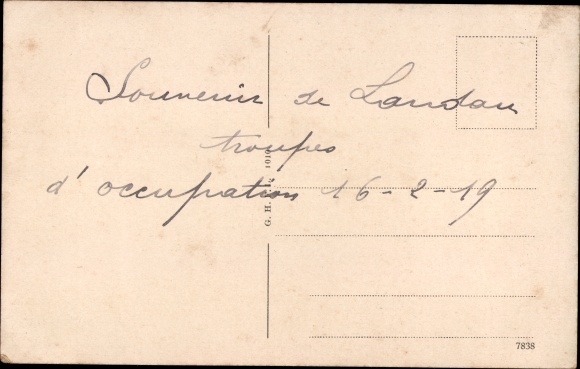 Souvenir de Landau
troupes
d'occupation 16-2-19
G. H.
7838